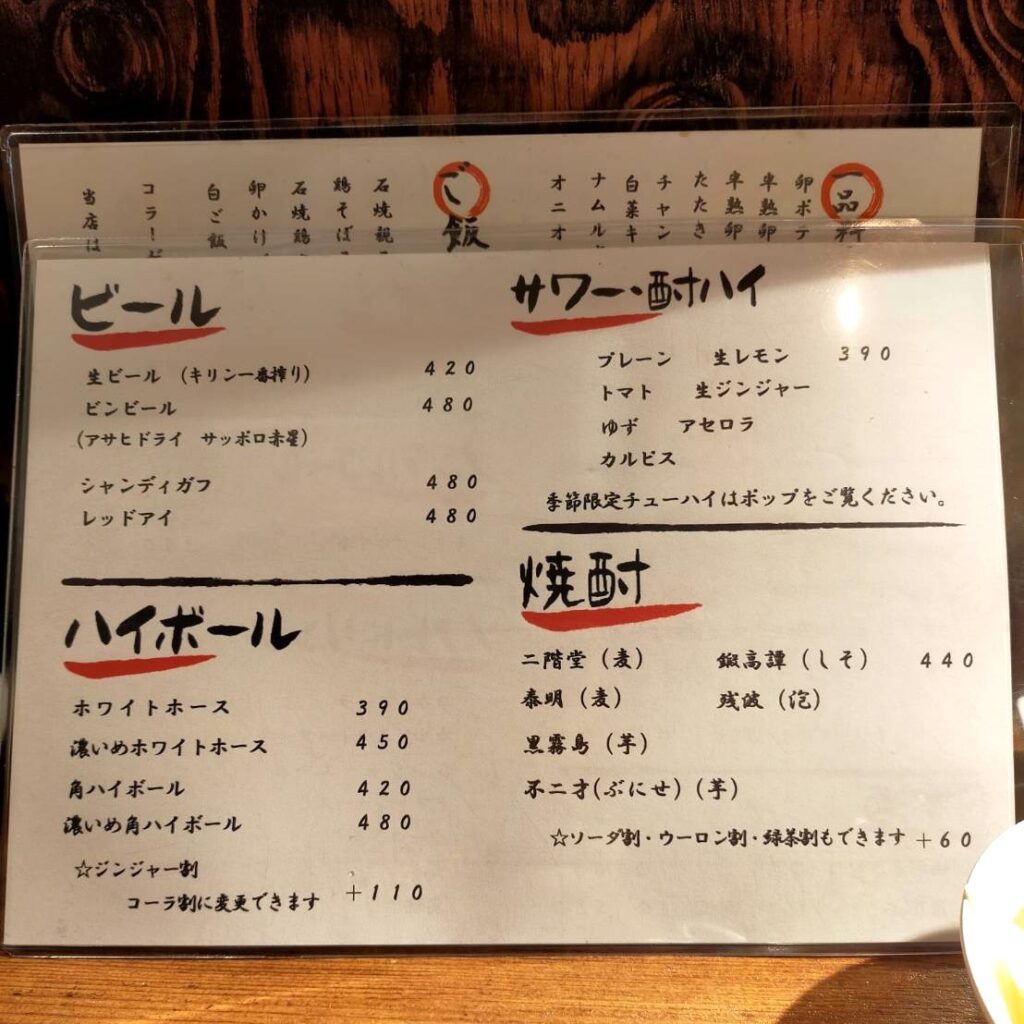 一品料
卵ポテ
半熟卵
半熟卵
たたき
チャン
白菜キ
ナムル
オニオ
ご飯
石焼親
鶏そぼ
石焼鶏
卵かけ
白ご飯
コラーゲ
当店は
ビール
生ビール (キリン一番搾り) 420
ビンビール 480
(アサヒドライ サッポロ赤星)
シャンディガフ 480
レッドアイ 480
ハイボール
ホワイトホース 390
濃いめホワイトホース 450
角ハイボール 420
濃いめ角ハイボール 480
☆ジンジャー割
コーラ割に変更できます +110
サワー・酎ハイ
プレーン 生レモン 390
トマト 生ジンジャー
ゆず アセロラ
カルピス
季節限定チューハイはポップをご覧ください。
焼酎
二階堂(麦) 鍛高譚(しそ) 440
泰明(麦) 残波(泡)
黒霧島(芋)
不二才(ぶにせ)(芋)
☆ソーダ割・ウーロン割・緑茶割もできます +60